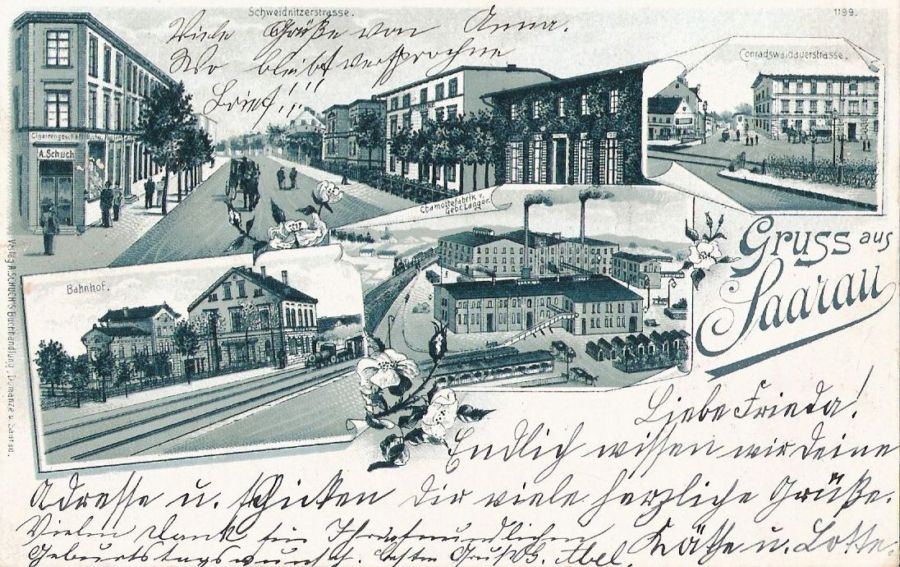 Schweidnitzerstrasse.
1199.
Viele Grüße von Anna.
Wo bleibt versprochne
Brief!!!
Conradswaldauerstrasse.
A. Schuch
Chamottefabrik v.
Gebr. Lange.
Gruss aus
Saarau
Bahnhof.
Verlag A. Schuch's Buchhandlung, Domanze u. Saarau.
Liebe Frieda!
Endlich wissen wir deine
Adresse u. schicken dir viele herzliche Grüße.
Käthe u. Lotte.
Vielen Dank für Ihren freundlichen
Geburtstagswunsch. besten Gruß G. Abel.